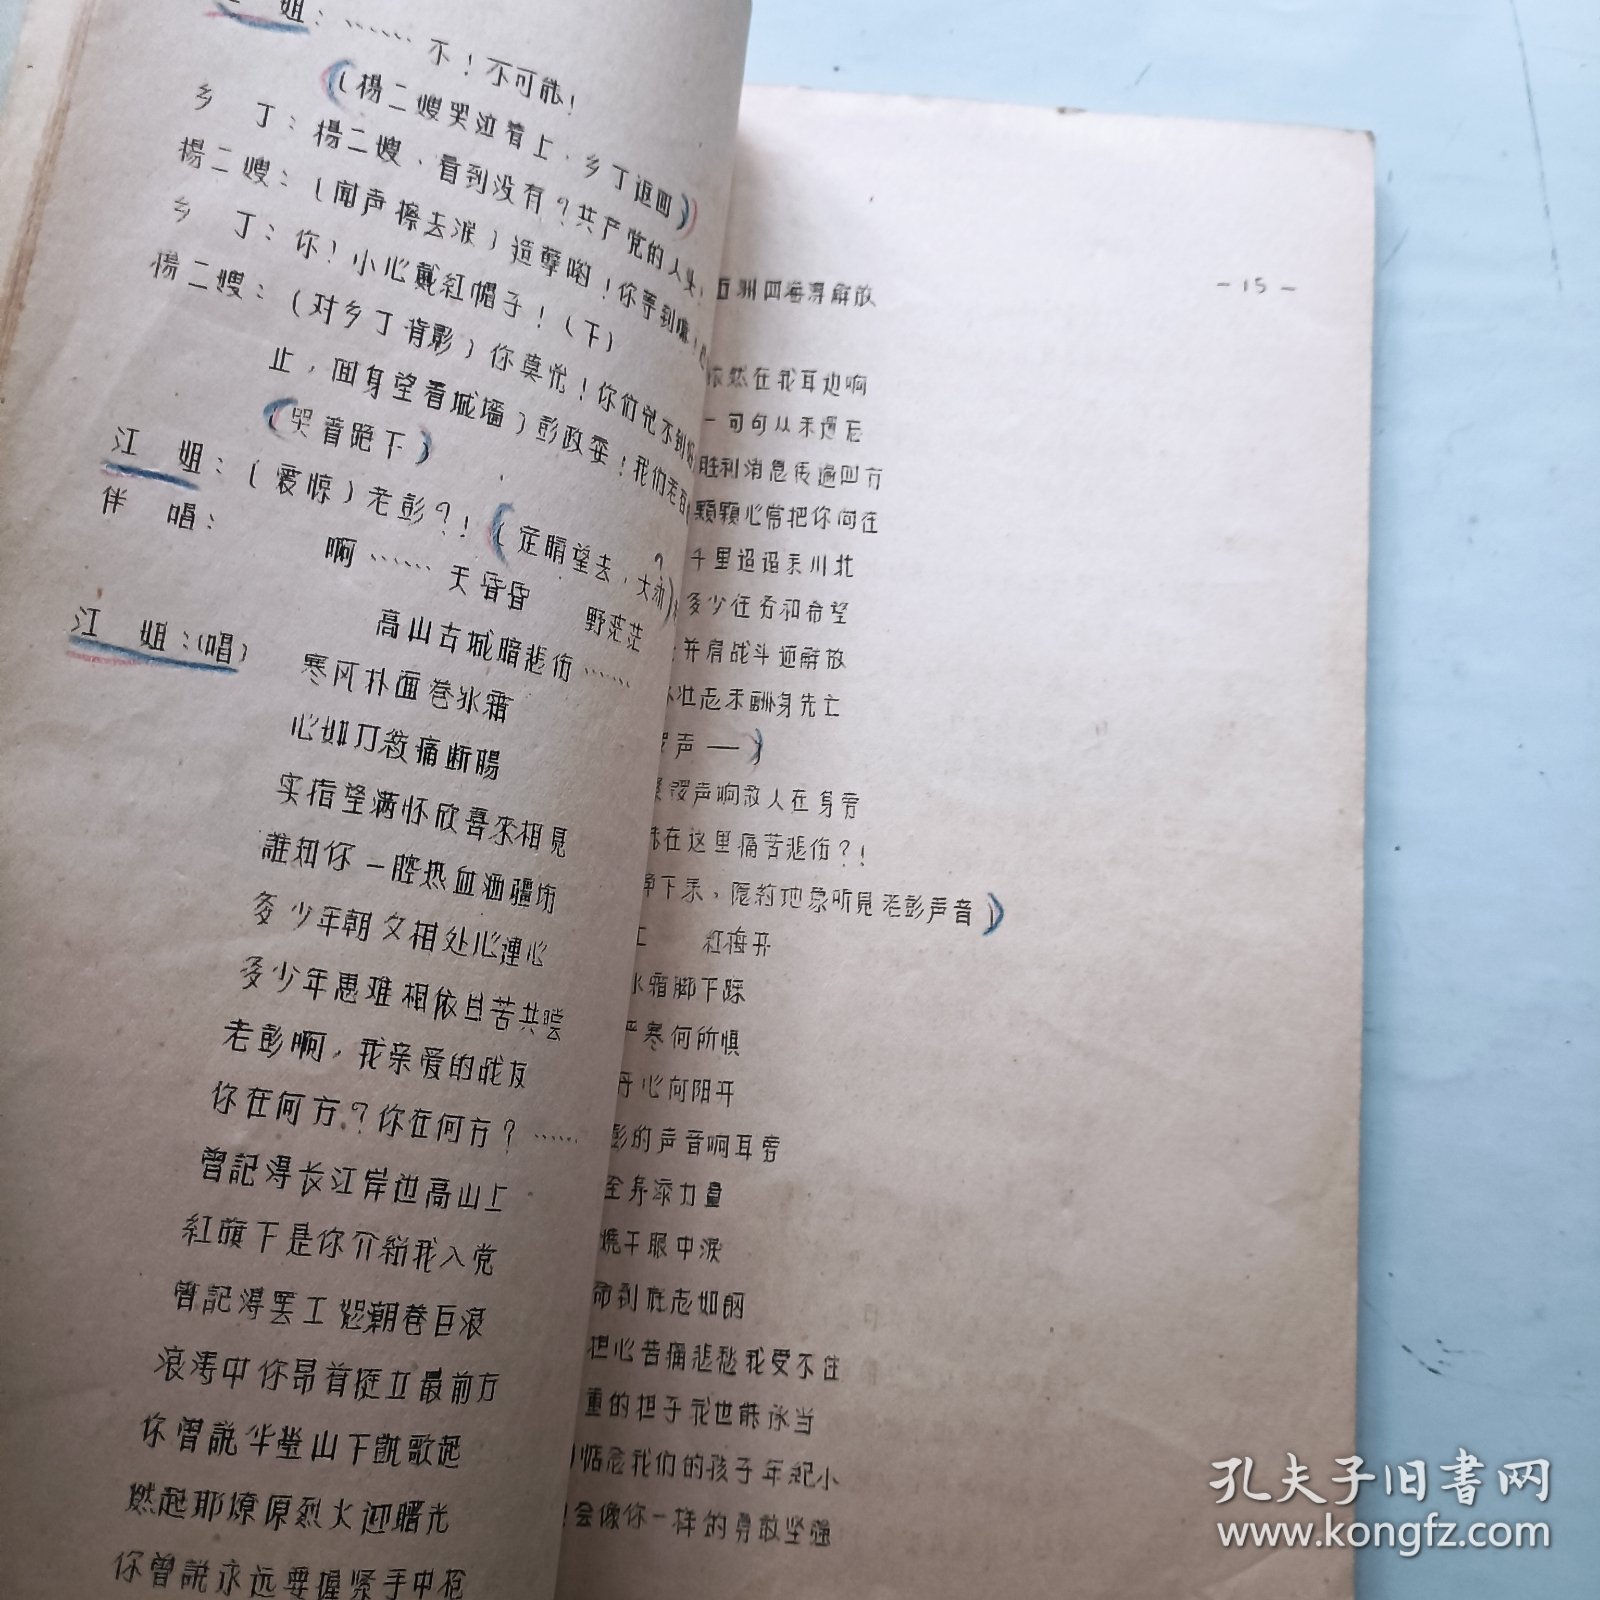 姐：……不！不可能！
（楊二嫂哭泣着上，乡丁返回）
乡　丁：楊二嫂，看到没有？共产党的人头！
楊二嫂：（闻声擦去泪）造孽哟！你等到嘛！
乡　丁：你！小心戴紅帽子！（下）
楊二嫂：（对乡丁背影）你莫忙！你们兇不到
止，回身望着城墙）彭政委！我们老百
（哭着跪下）
江　姐：（震惊）老彭？！（定睛望去，大恸）
伴　唱：啊……天昏昏　野茫茫
高山古城暗悲伤……
江　姐：（唱）寒风扑面卷冰霜
心如刀絞痛断腸
实指望满怀欣喜来相見
誰知你一腔热血洒疆场
多少年朝夕相处心連心
多少年患难相依甘苦共嚐
老彭啊，我亲爱的战友
你在何方？你在何方？……
曾記得长江岸边高山上
紅旗下是你介紹我入党
曾記得罢工怒潮卷巨浪
浪涛中你昂首挺立最前方
你曾說华蓥山下凱歌起
燃起那燎原烈火迎曙光
你曾說永远要握紧手中枪
-15-
五洲四海得解放
依然在我耳边响
一句句从未遗忘
胜利消息传遍四方
顆顆心常把你向往
千里迢迢来川北
多少任务和希望
并肩战斗迎解放
壮志未酬身先亡
锣声——）
锣声响敌人在身旁
能在这里痛苦悲伤？！
静下来，隐约地象听見老彭声音）
红梅开
冰霜脚下踩
严寒何所惧
丹心向阳开
彭的声音响耳旁
全身添力量
燒干眼中泪
命到底志如鋼
担心苦痛悲愁我受不住
重的担子我也能承当
惦念我们的孩子年紀小
会像你一样的勇敢坚强
孔夫子旧書网
www.kongfz.com